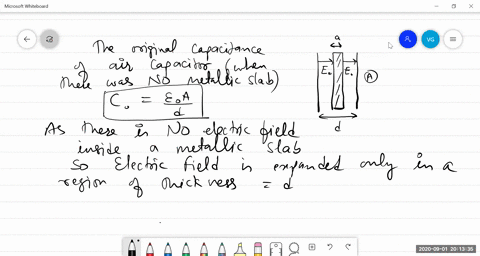 Microsoft Whiteboard
VG
The original capacitance
of air capacitor (when
there was NO metallic slab)
C₀ = ε₀A/d
a
E₀ E₀
A
d
As there is No electric field
inside a metallic slab
So Electric field is expanded only in a
region of thickness = d
2020-09-01 20:13:35